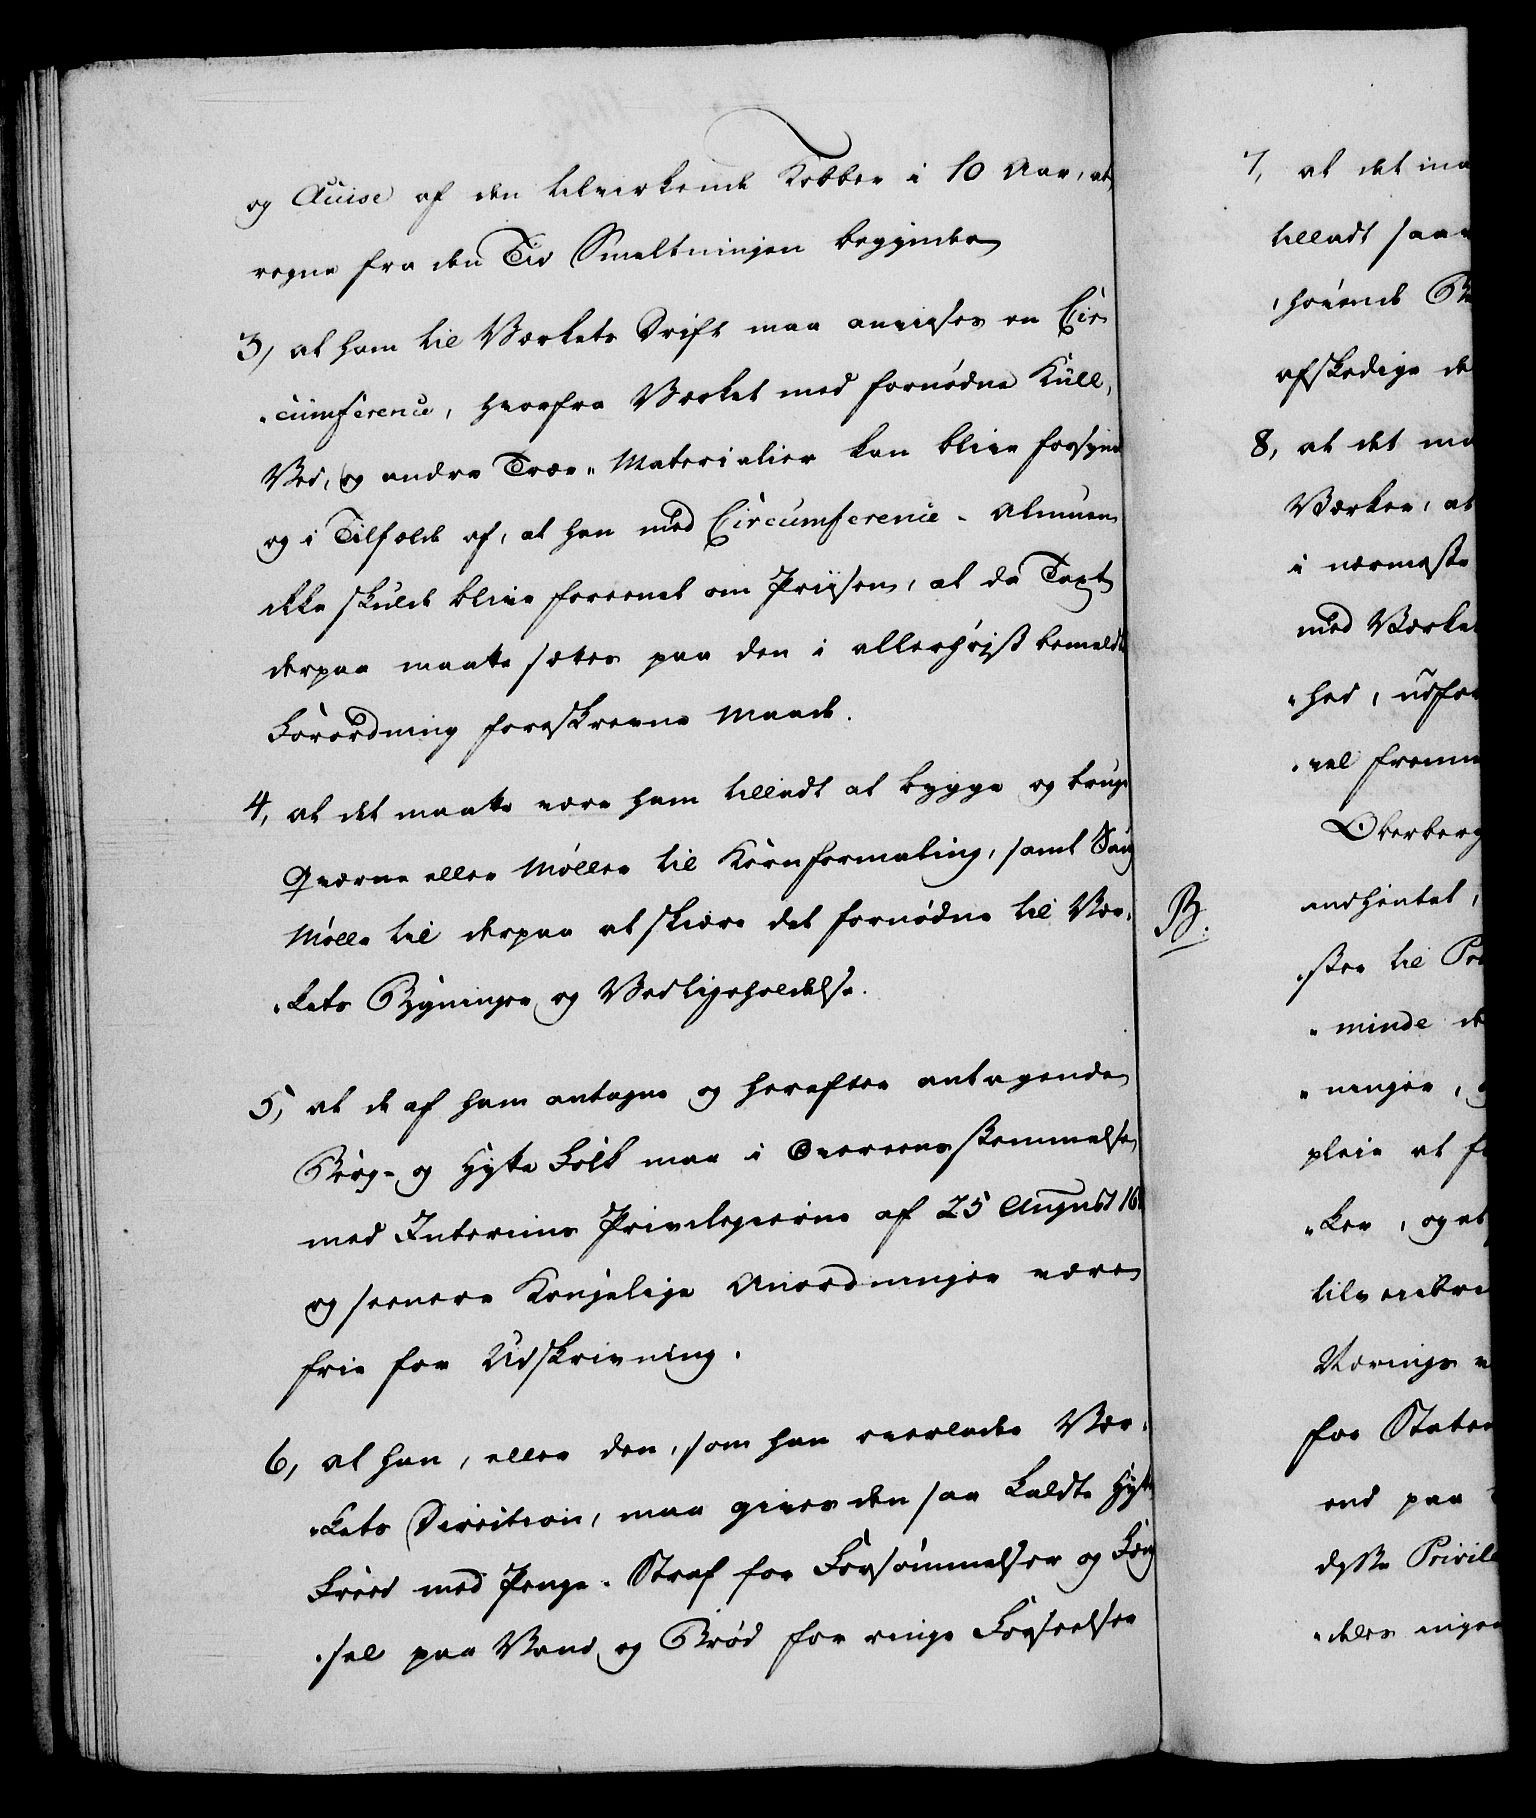 og Accise af den tilvirkende Kobber i 10 Aar, at
regne fra den Tid Smeltningen begynder
3, at ham til Værkets Drift maa anviises en Cir-
cumference, hvorfra Værket med fornødne Kull,
Ved, og andre Træe-Materialier kan blive forsynet
og i Tilfælde af, at han med Circumference-Almuen
ikke skulde blive foreenet om Priisen, at da Taxt
derpaa maatte sættes paa den i allerhøjst bemeldte
Forordning foreskrevne Maade.
4, at det maatte være ham tilladt at bygge og bruge
Qværne eller Møller til Kornformaling, samt Saug
Mølle til derpaa at skiære det fornødne til Vær-
kets Bygninger og Vedligeholdelse.
5, at de af ham antagne og herefter antagende
Berg- og Hytte Folk maa i Overeensstemmelse
med Interims Privilegierne af 25 August 16
og seenere Kongelige Anordninger være
frie for Udskrivning.
6, at han, eller den, som han overlader Vær-
kets Direction, maa gives den saa kaldte Hytte
Freed med Penge-Straf for Forsømmelser og Fæng
sel paa Vand og Brød for ringe Forseelser
7, at det maa
tilladt saa
hørende B
afskedige de
8, at det maa
Værker, at
i nærmeste
med Værket
hed, udfor
vel fremm
Oberberg
B. indhentet,
ster til Pr
minde de
ninger, o
pleie at f
ker, og at
tilveiebri
Nærings
for Staten
end paa
disse Privile
deles ingen